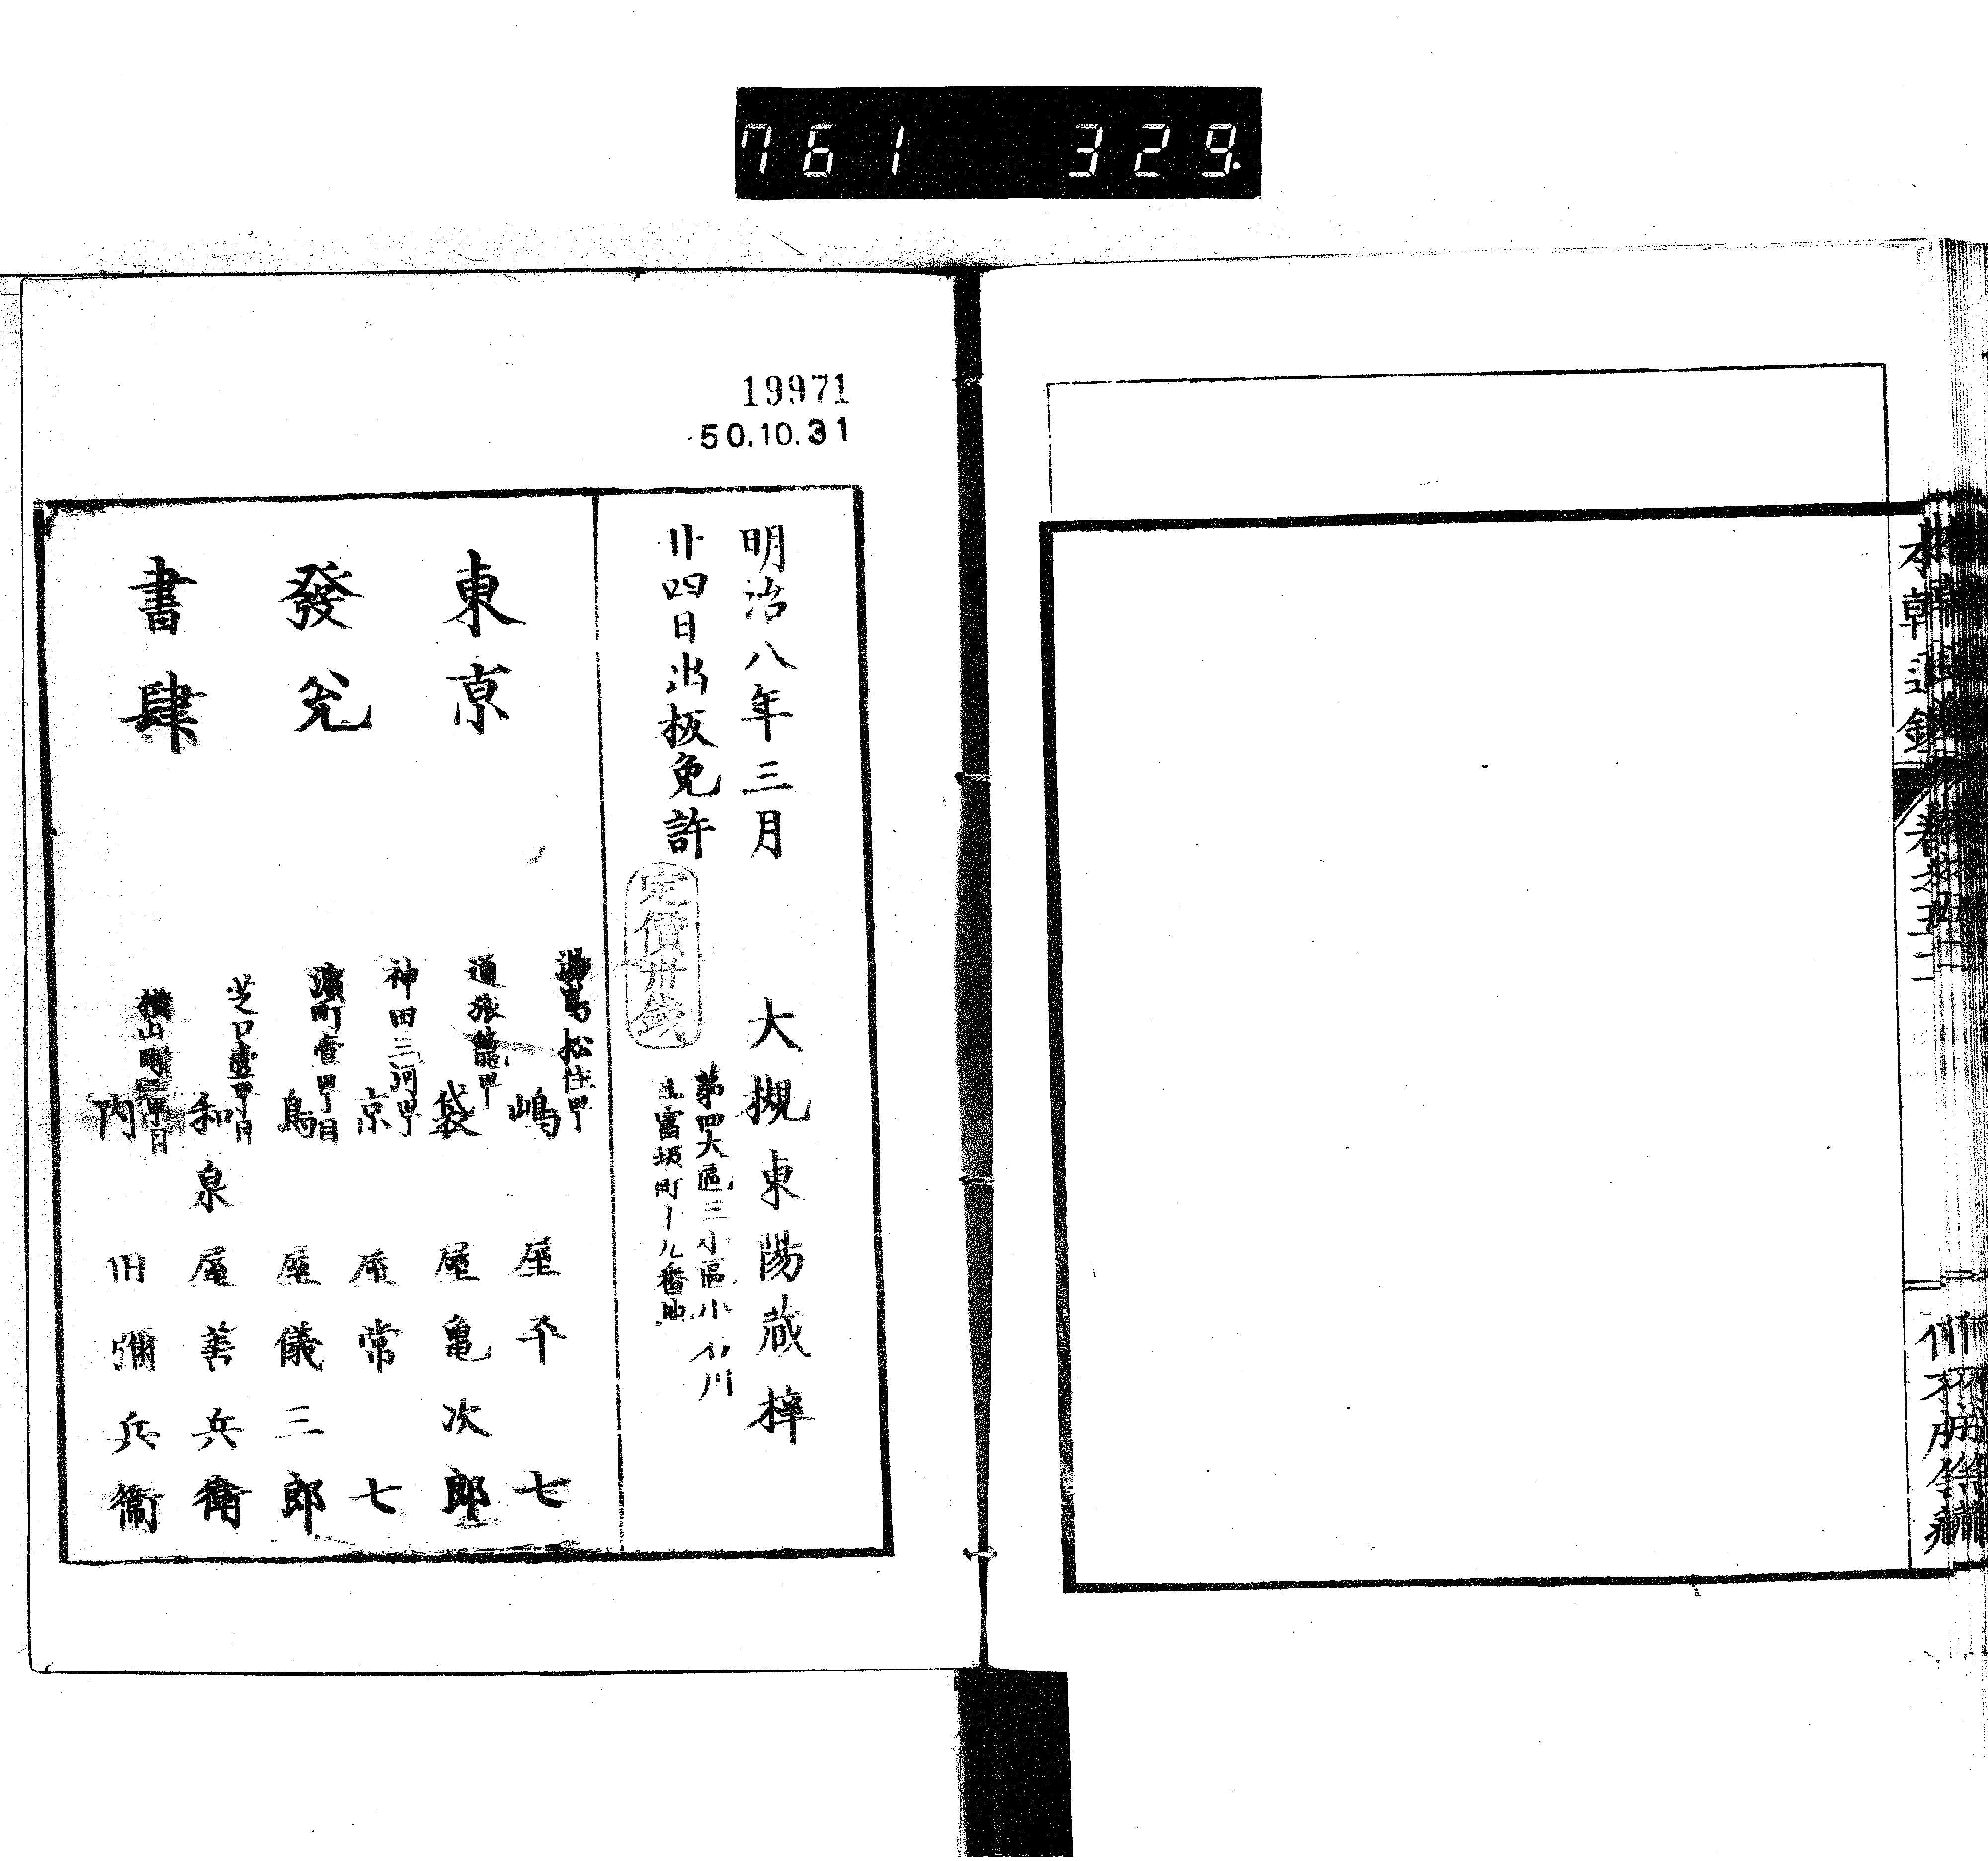 761 329.
本朝
19971
50.10.31
明治八年三月
廿四日出板免許
定價卅錢
大槻東陽蔵梓
第四大區三小區小石川
上富坂町十九番地
東京
發兌
書肆
湯島松住町
嶋屋平七
通旅籠町
袋屋亀次郎
神田三河町
京屋常七
濱町壹町目
鳥屋儀三郎
芝口壹町目
和泉屋善兵衛
横山町三町目
内田彌兵衞